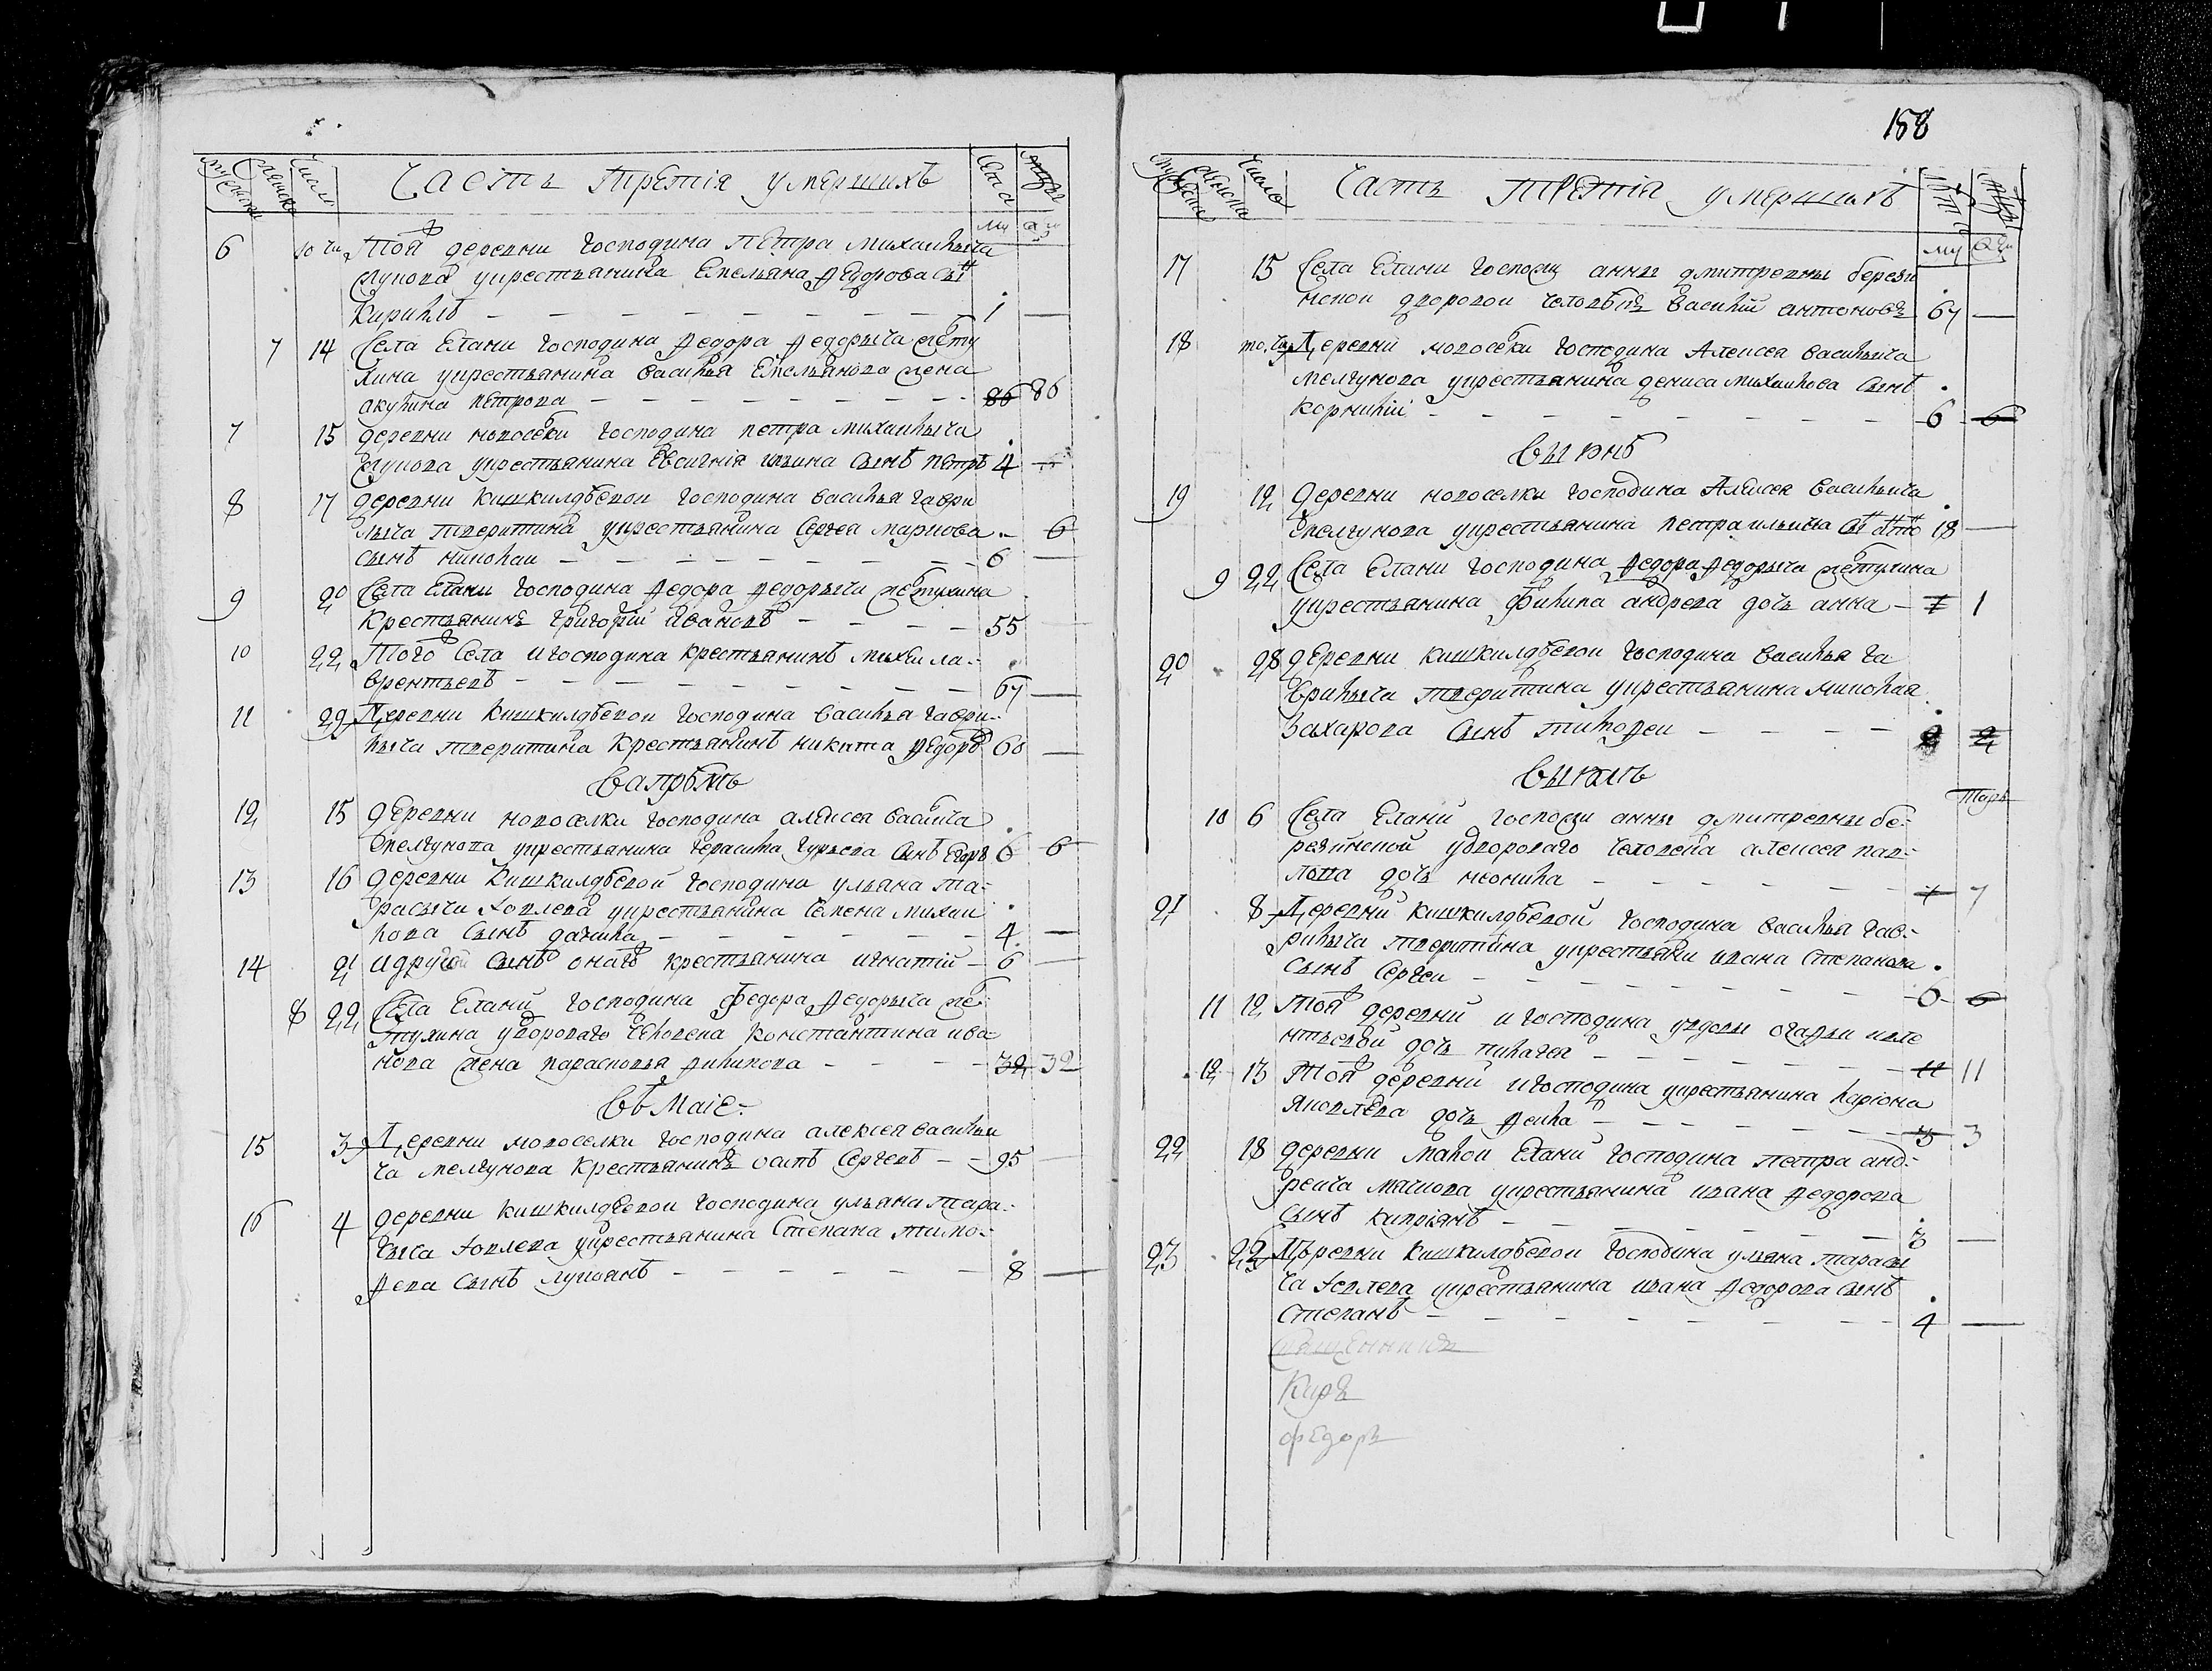 158
Часть третiя умершихъ
Лета
му
6 Тоя деревни господина петра михаилыча
у крестьянина Емельяна Федорова сынъ
Кирилъ 1
7 14 Села Елани господина Федора Федорыча
у крестьянина василья Емельянова жена
акулина петрова 86 86
7 15 деревни новоселки господина петра михаилыча
у крестьянина Евсигнiя ильина сынъ петръ 4
8 17 деревни кишкилдѣевои господина василья гаври
лыча тверитина у крестьянина Сергея маркова 6
сынъ николаи 6
9 20 Села Елани господина Федора Федорыча
Крестьянинъ григорiй ивановъ 55
10 22 Того Села и господина крестьянинъ михеи ла
врентьевъ 67
11 29 Деревни кишкилдѣевои господина василья гаври
лыча тверитина крестьянинъ никита Федоровъ 60
В апрѣлѣ
12 15 деревни новоселки господина алексея васильича
мелгунова у крестьянина герасима гурьева сынъ Егоръ 6 6
13 16 деревни Кишкилдѣевой господина ульяна та
расыча у крестьянина Семена михаи
лова сынъ данила 4
14 21 и другой сынъ онаго крестьянина игнатiй 6
8 22 Села Елани господина федора Федорыча
у дворового человека константина ива
нова жена парасковья филипова 32 32
Въ Маiе
15 3 Деревни новоселки господина алексея василье
ча мелгунова крестьянинъ осипъ Сергеевъ 95
16 4 деревни кишкилдѣевои господина ульяна тара
сыча у крестьянина Степана тимо
Феева сынъ лукьянъ 8
Часть третiя умершихъ
число
му
17 15 Села Елани госпожи анны дмитревны берези
нской дворовой человѣкъ василiй антоновъ 67
18 Деревни новоселки господина Алексея васильича
мелгунова у крестьянина дениса михаилова сынъ
корнилiй 6 6
В июнѣ
19 12 деревни новоселки господина Алексея васильича
мелгунова у крестьянина петра ильина 18
9 22 Села Елани господина Федора Федорыча
у крестьянина филипа андреева дочь анна 1 1
20 28 деревни кишкилдѣевои господина василья га
врилыча тверитина у крестьянина николая
Захарова сынъ тимофеи 2 2
В июлѣ
10 6 Села Елани госпожи анны дмитревны бе
резинской у дворового человека алексея пав
лова дочь неонила 7 7
21 8 Деревни кишкилдѣевой господина василья гав
рилыча тверитина у крестьяни ивана Степанова
сынъ Сергеи 6 6
11 12 Тоя деревни и господина у вдовы
дочь пелагея 11 11
12 13 Тоя деревни и господина у крестьянина ларiона
яковлева дочь 3 3
22 18 деревни малой Елани господина петра анд
реича у крестьянина ивана Федорова
сынъ киприянъ 3
23 22 Деревни кишкилдѣевои господина ульяна тарасы
ча у крестьянина ивана Федорова сынъ
Степанъ 4
священникъ
Киръ
федоръ